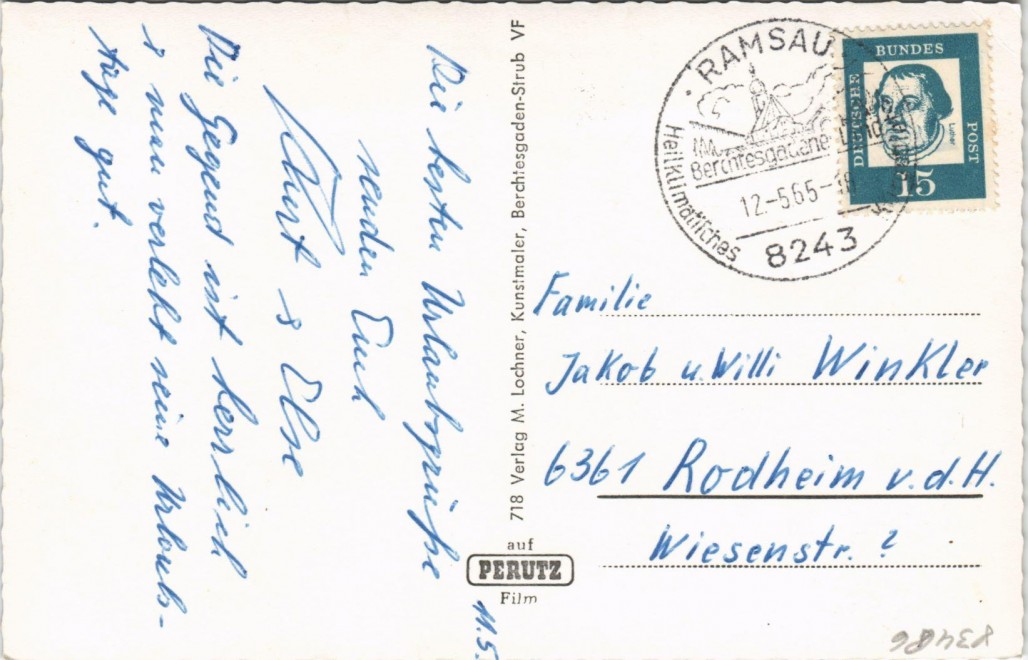 Die besten Urlaubsgrüße
senden Euch
Kurt & Else
Die Gegend ist herrlich
& man verlebt seine Urlaubs-
tage gut.
11.5.
718 Verlag M. Lochner, Kunstmaler, Berchtesgaden-Strub VF
auf
PERUTZ
Film
RAMSAU
Heilklimatisches
Berchtesgadener
Land
12.-5.65-18
8243
DEUTSCHE
BUNDES
POST
Luther
15
Familie
Jakob u. Willi Winkler
6361 Rodheim v.d.H.
Wiesenstr. ?